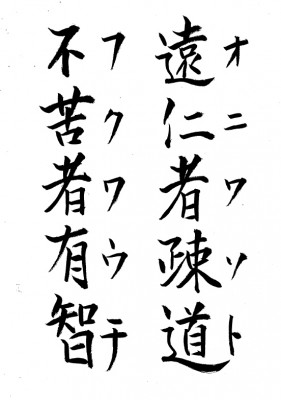 オニワソト
遠仁者疎道
フクワウチ
不苦者有智